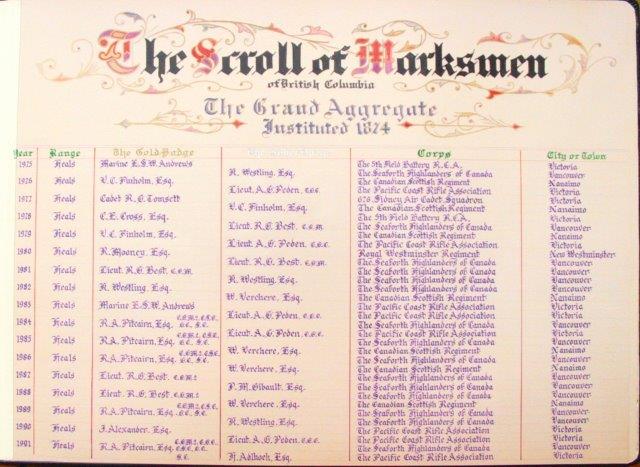 The Scroll of Marksmen
of British Columbia
The Grand Aggregate
Instituted 1874
Year Range The Gold Badge Corps City or Town
1975 Heals Marine E.S.W. Andrews The 5th Field Battery R.C.A. Victoria
R. Westling, Esq. The Seaforth Highlanders of Canada Vancouver
1976 Heals V.C. Finholm, Esq. The Canadian Scottish Regiment Nanaimo
Lieut. A.G. Peden, The Pacific Coast Rifle Association Victoria
1977 Heals Cadet R.G. Tomsett Sidney Air Cadet Squadron Victoria
V.C. Finholm, Esq. The Canadian Scottish Regiment Nanaimo
1978 Heals C.E. Cross, Esq. The 5th Field Battery R.C.A. Victoria
Lieut. R.G. Best, The Seaforth Highlanders of Canada Vancouver
1979 Heals V.C. Finholm, Esq. The Canadian Scottish Regiment Nanaimo
Lieut. A.G. Peden, The Pacific Coast Rifle Association Victoria
1980 Heals R. Mooney, Esq. Royal Westminster Regiment New Westminster
Lieut. R.G. Best, The Seaforth Highlanders of Canada Vancouver
1981 Heals Lieut. R.G. Best, The Seaforth Highlanders of Canada Vancouver
R. Westling, Esq. The Seaforth Highlanders of Canada Vancouver
1982 Heals R. Westling, Esq. The Seaforth Highlanders of Canada Vancouver
W. Verchere, Esq. The Canadian Scottish Regiment Nanaimo
1983 Heals Marine E.S.W. Andrews The Pacific Coast Rifle Association Victoria
Lieut. A.G. Peden, The Pacific Coast Rifle Association Victoria
1984 Heals R.A. Pitcairn, Esq. The Seaforth Highlanders of Canada Vancouver
Lieut. A.G. Peden, The Pacific Coast Rifle Association Victoria
1985 Heals R.A. Pitcairn, Esq. The Seaforth Highlanders of Canada Vancouver
W. Verchere, Esq. The Canadian Scottish Regiment Nanaimo
1986 Heals R.A. Pitcairn, Esq. The Seaforth Highlanders of Canada Vancouver
W. Verchere, Esq. The Canadian Scottish Regiment Nanaimo
1987 Heals Lieut. R.G. Best, The Seaforth Highlanders of Canada Vancouver
P.M. Gibault, Esq. The Seaforth Highlanders of Canada Vancouver
1988 Heals Lieut. R.G. Best, The Seaforth Highlanders of Canada Vancouver
W. Verchere, Esq. The Canadian Scottish Regiment Nanaimo
1989 Heals R.A. Pitcairn, Esq. The Seaforth Highlanders of Canada Vancouver
R. Westling, Esq. The Seaforth Highlanders of Canada Vancouver
1990 Heals J. Alexander, Esq. The Pacific Coast Rifle Association Victoria
Lieut. A.G. Peden, The Pacific Coast Rifle Association Victoria
1991 Heals R.A. Pitcairn, Esq. The Seaforth Highlanders of Canada Vancouver
Esq. The Pacific Coast Rifle Association Victoria